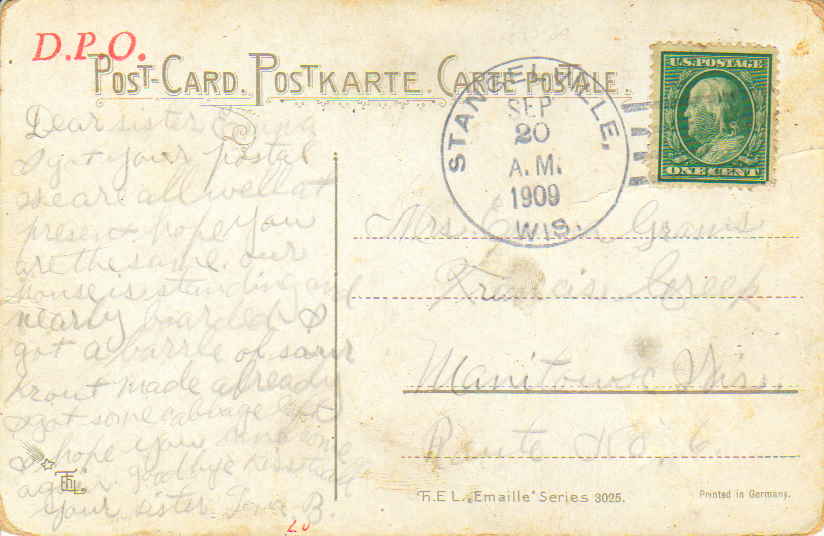 D.P.O.
POST-CARD. POSTKARTE. CARTE POSTALE.
STANGELVILLE,
SEP
20
A.M.
1909
WIS.
U.S. POSTAGE
ONE CENT
Dear sister Emma
I got your postal
we are all well at
present hope you
are the same. our
house is standing and
nearly boarded I
got a barrle of saur
krout made already
I got some cabbage left
I hope you come
again goodbye
your sister B.
Mrs Grams
Francis Creek
Manitowoc Wis.
Route No. 6
ThEL
T.H.E.L. „Emaille" Series 3025.
Printed in Germany.